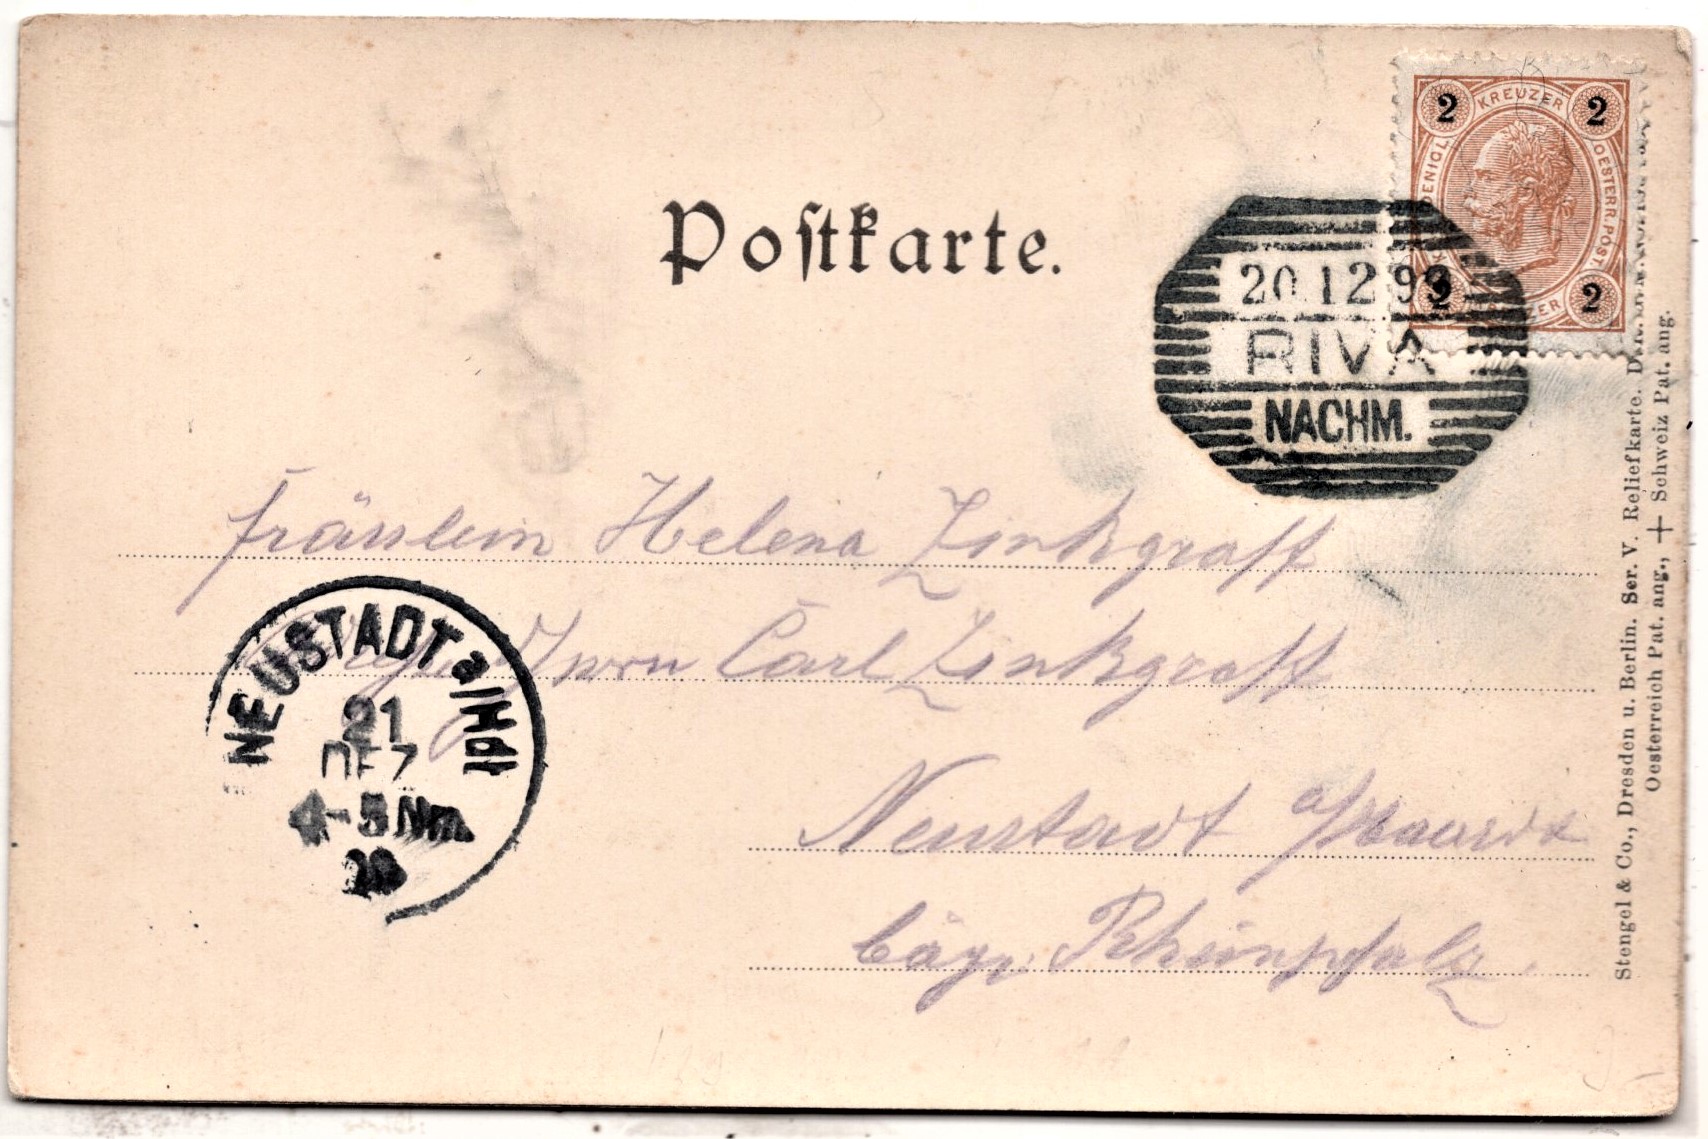 Postkarte.
2 KREUZER 2
OESTERR. POST.
2 2
20.12 99
RIVA
NACHM.
Fräulein Helena Zinkgraff
Herrn Carl Zinkgraff
NEUSTADT a/Hdt
21
DEZ
4-5 Nm.
Neustadt a/Haardt
bayr. Rheinpfalz.
Stengel & Co., Dresden u. Berlin. Ser. V. Reliefkarte.
Oesterreich Pat. ang., + Schweiz Pat. ang.